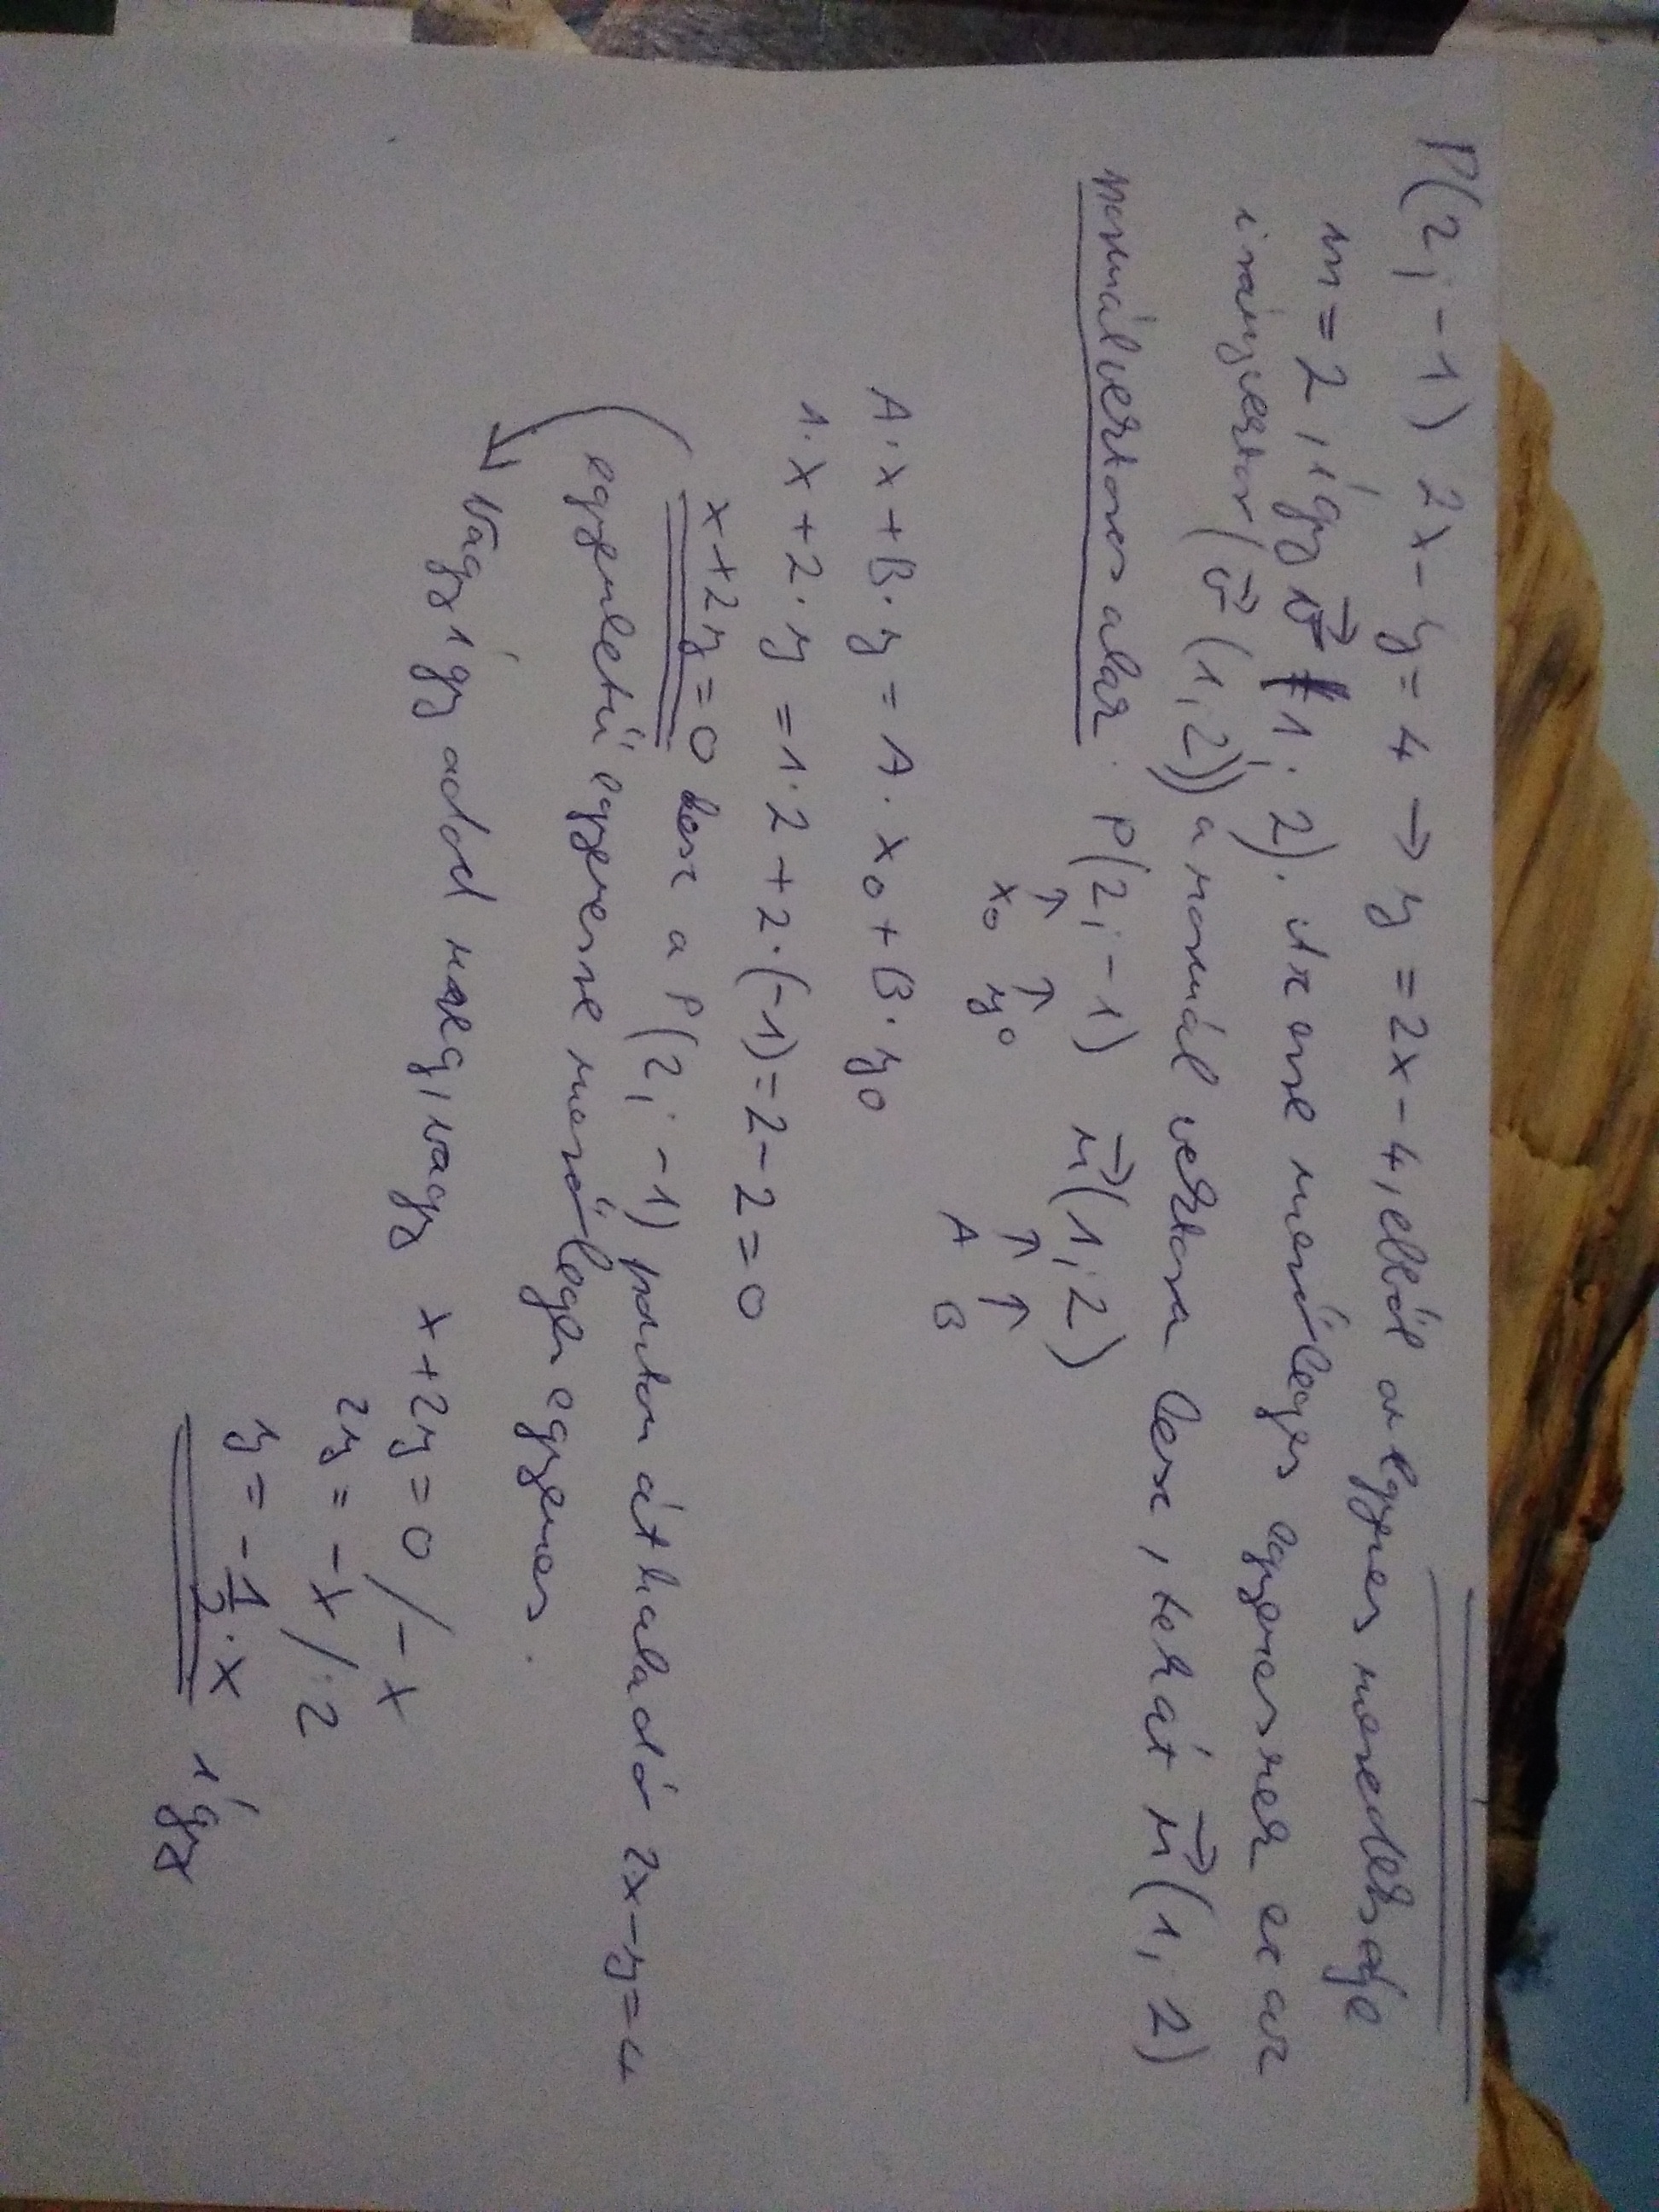 P(2; -1) 2x - y = 4 → y = 2x - 4, ebből az egyenes meredeksége
m = 2, így v⃗ (1; 2). Az erre merőleges egyenesnek ez az
irányvektor (v⃗ (1; 2)) a normál vektora lesz, tehát n⃗ (1; 2)
normálvektoros alak: P(2; -1) n⃗ (1; 2)
↑ ↑ ↑ ↑
x₀ y₀ A B
A·x + B·y = A·x₀ + B·y₀
1·x + 2·y = 1·2 + 2·(-1) = 2 - 2 = 0
x + 2y = 0 lesz a P(2; -1) ponton áthaladó 2x - y = 4
egyenletű egyenesre merőleges egyenes.
Vagy így add meg, vagy x + 2y = 0 / -x
2y = -x / :2
y = -1/2 · x így